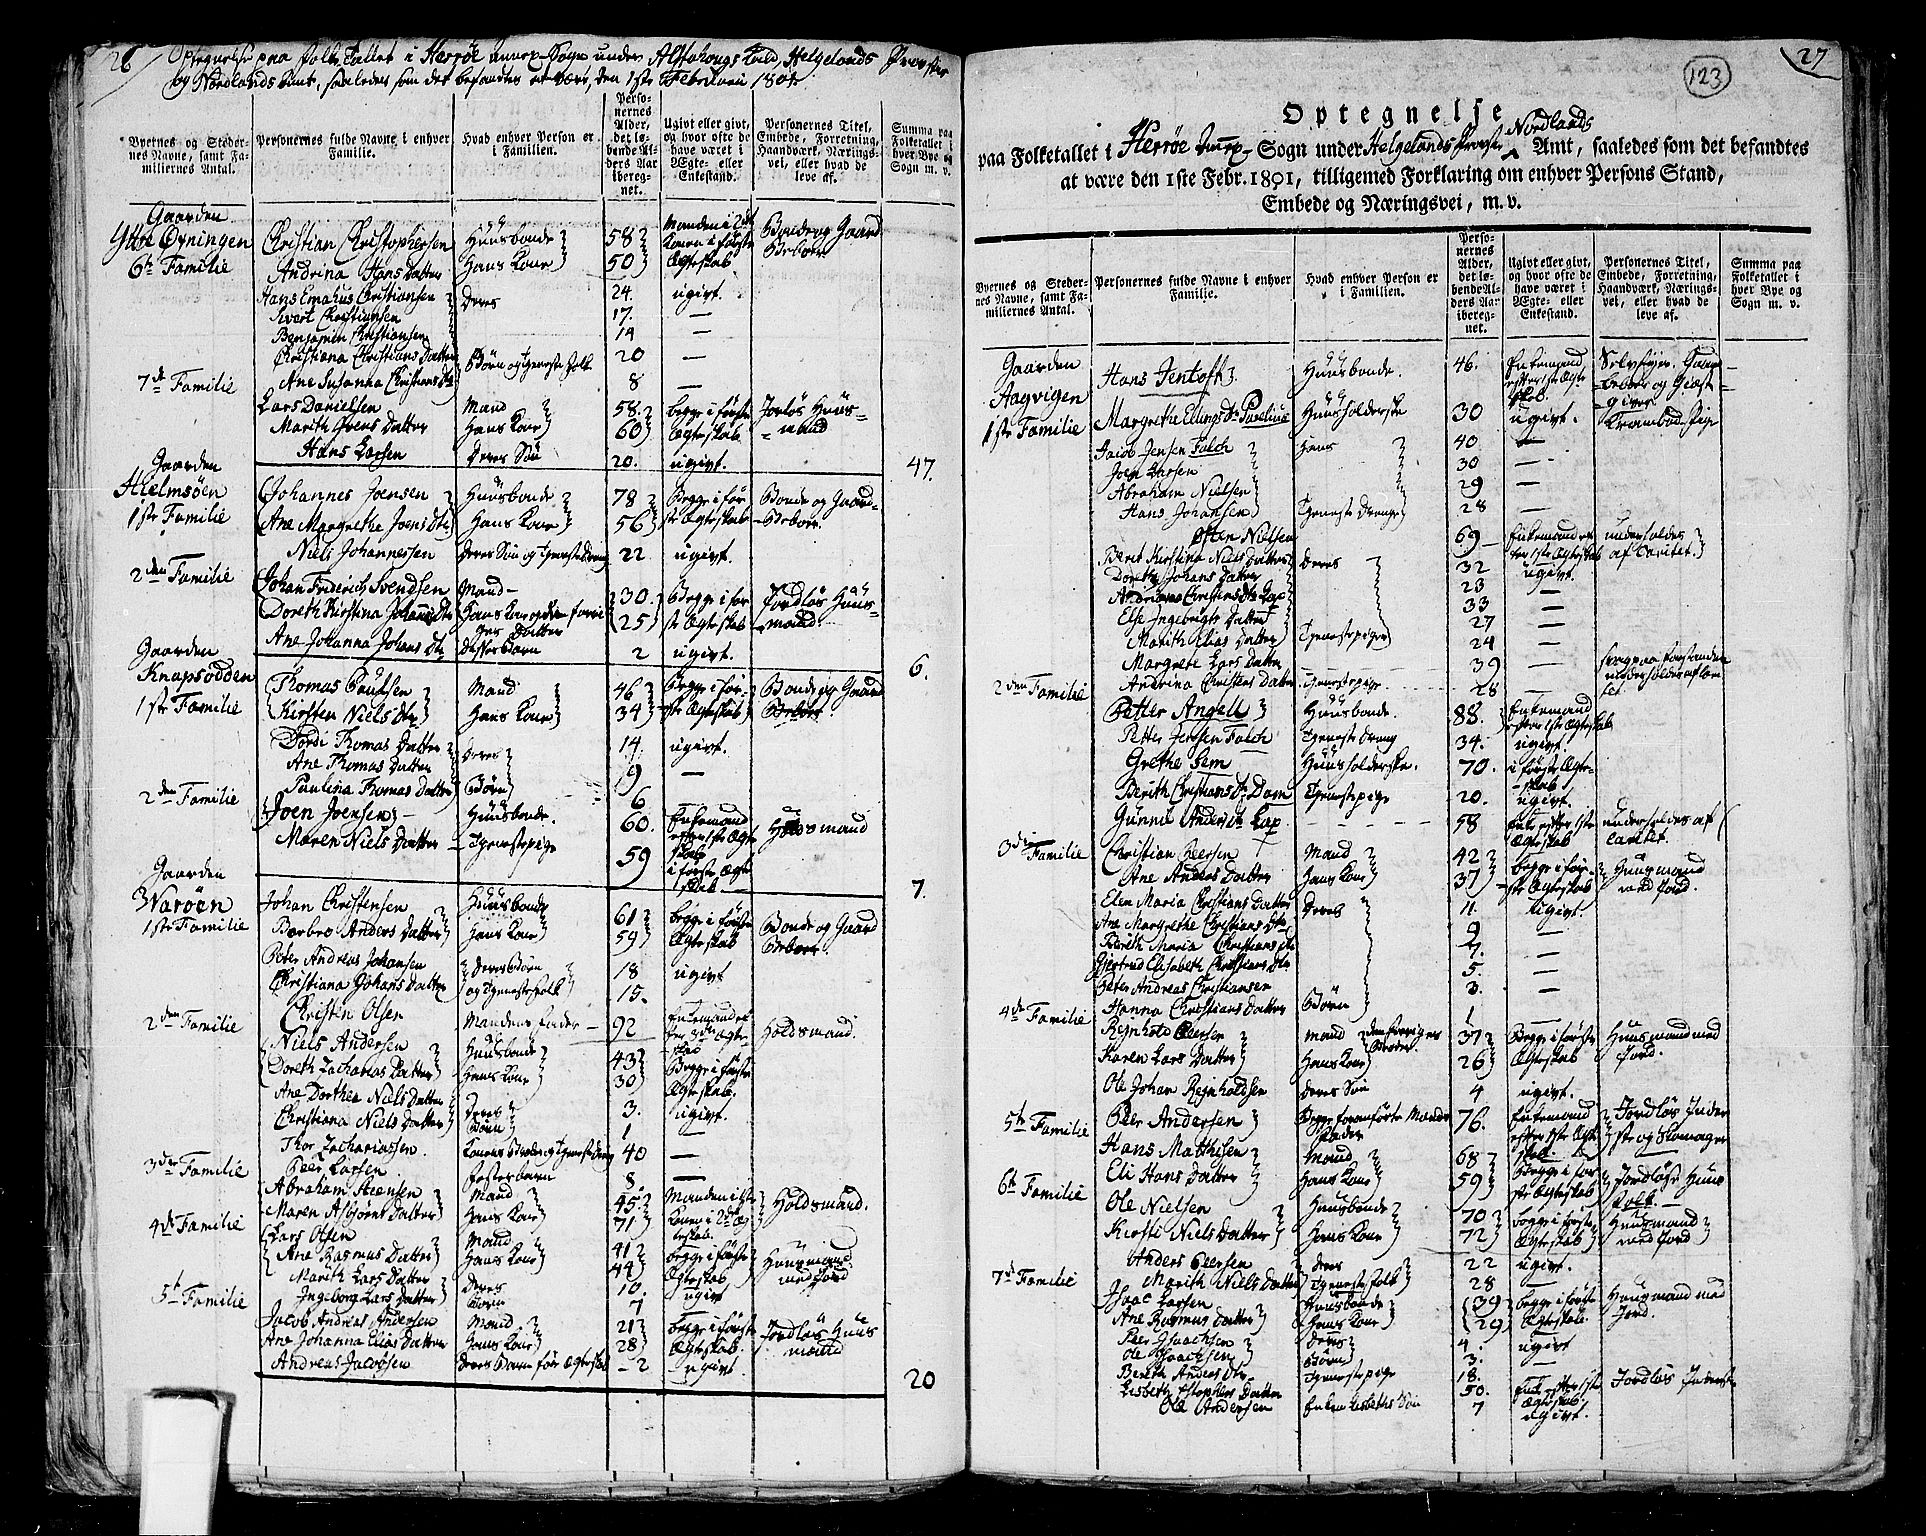 26
Optegnelse paa Folke Tallet i Herröe Annex-Sogn under Alstahougs Gield, Helgelands Provstie
og Nordlands Amt, saaledes som det befandtes at være, den 1ste Februarii 1801.
Byernes og Stedernes Navne, samt Familiernes Antal.
Personernes fulde Navne i enhver Familie.
Hvad enhver Person er i Familien.
Personernes Alder, det løbende Alders Aar iberegnet.
Ugivt eller givt, og hvor ofte de have været i Ægte- eller Enkestand.
Personernes Titel, Embede, Forretning, Haandværk, Næringsvei, eller hvad de leve af.
Summa paa Folketallet i hver Bye og Sogn m. v.
Gaarden
Ytte Øyningen Christian Christophersen Huusbonde 58 Manden i 2det Bonde og Gaard
6te Familie Andrina Hans Datter Hans Kone 50 Konen i første Ægteskab Beboer
Hans Emahus Christiansen Deres 24. ugivt
Sivert Christiansen 17. —
Benjamin Christiansen 14 —
Christiana Christians Datter Børn og Tjeneste folk 20 —
7de Familie Ane Susanna Christians Dtr 8 —
Lars Danielsen Mand 58. begge i første Jorløs Huus-
Marith Ivers Datter Hans Kone 60 Ægteskab. mand
Hans Larsen Deres Sön 20. ugivt. 47.
Gaarden
Hielmsöen Johannes Joensen Huusbonde 78 Begge i før- Bonde og Gaard-
1ste Familie Ane Margrethe Joens Dtr Hans Kone 56 ste Ægteskab Beboer.
Niels Johannessen Deres Sön og Tjenestedreng 22 ugivt.
2den Familie Johan Friderich Svendsen Mand 30. Begge i før- Jordløs Huus-
Doreth Kirstina Johannis Dtr Hans Kone og den forriges Datter 25 ste Ægteskab mand.
Ane Johanna Johans Dtr Disses Barn 2 ugivt. 6.
Gaarden
Knapsodden Thomas Poulsen Mand 46 Begge i før- Bonde og Gaard
1ste Familie Kirsten Niels Dtr Hans Kone 34 ste Ægteskab Beboer
Dordi Thomas Datter Deres 14. ugivt.
Ane Thomas Datter 9 —
Paulina Thomas Datter Børn 6
2den Familie Joen Joensen Huusbonde. 60. Enkemand efter 1ste Ægteskab Huusmand
Maren Niels Datter Tjenestepige 59 i første Ægteskab 7.
Gaarden
Waröen Johan Christensen Huusbonde 61 begge i første Bonde og Gaard
1ste Familie Barbro Anders Datter Hans Kone 59 Ægteskab Beboer.
Peter Andreas Johansen Deres Børn 18 ugivt
Christiana Johans Datter og Tjenestefolk 15.
Christen Olsen Mandens Fader 92 Enkemand efter 3die Ægteskab Holdsmand.
2den Familie Niels Andersen Huusbonde 43 Begge i første
Doreth Zacharias Datter Hans Kone 30 Ægteskab.
Ane Dorthea Niels Datter Deres 3. ugivt.
Christiana Niels Datter Børn 1 —
Thor Zachariassen. Konens Broder og Tjenestedreng 40 —
3die Familie Peer Larsen Fosterbarn 8 —
Abraham Steensen Mand 45 Manden i 1ste Holdsmand.
Maren Asbjørns Datter Hans Kone 71 Konen i 2det Ægteskab.
4de Familie Lars Olsen Mand 41 begge i første Huusmand
Ane Rasmus Datter Hans Kone 44 Ægteskab med Jord
Marith Lars Datter Deres 10. ugivt
Ingeborg Lars Datter Børn 7 —
5te Familie Jacob Andreas Andersen Mand 21 begge i første Jordløs Huus
Ane Johanna Elias Datter Hans Kone 28 Ægteskab mand
Andreas Jacobsen Deres Barn før Ægteskab 2 ugivt 20
27
123
Optegnelse
paa Folketallet i Herröe Annex-Sogn under Helgelands Provstie Nordlands Amt, saaledes som det befandtes
at være den 1ste Febr. 1801, tilligemed Forklaring om enhver Persons Stand,
Embede og Næringsvei, m. v.
Byernes og Stedernes Navne, samt Familiernes Antal.
Personernes fulde Navne i enhver Familie.
Hvad enhver Person er i Familien.
Personernes Alder, det løbende Alders Aar iberegnet.
Ugivt eller givt, og hvor ofte de have været i Ægte- eller Enkestand.
Personernes Titel, Embede, Forretning, Haandværk, Næringsvei, eller hvad de leve af.
Summa paa Folketallet i hver Bye og Sogn m. v.
Gaarden
Aagvigen Hans Jentoft Huusbonde. 46. Enkemand efter 1ste Ægteskab. Selvejer. Gaardbeboer og Giæstgiver
1ste Familie Margrethe Ellings Dtr Parelius Huusholderske 30 ugivt. Krambod Pige
Jacob Jensen Falch Hans 40 —
Joen Larsen 30 —
Abraham Nielsen 29 —
Hans Johansen Tjeneste Drenge 28 —
Østen Nielsen 69 Enkemand efter 1ste Ægteskab underholdes af Caritet.
Beret Kirstina Niels Datter Deres 32 ugivt.
Doreth Johans Datter 23 —
Andriana Christians Dtr Lap 33 —
Else Ingebrigts Datter 27 —
Marith Elias Datter Tjenestepiger 24 —
Margrete Lars Datter 39 —
2den Familie Andrina Christens Datter Tjenestepige 28 —
Petter Angell Huusbonde. 88. Enkemand efter 1ste Ægteskab
Petter Jensen Falch Tjeneste Dreng 34. ugivt.
Grethe Sem Huusholderske. 70. i første Ægteskab
Berith Christians Dtr Dam Tjenestepige 20. ugivt.
Gunnil Anders Dtr Lap. 58 Enke efter 1ste Ægteskab underholdes af Caritet.
3die Familie Christian Peersen Mand 42 begge i før- Huusmand
Ane Anders Datter Hans Kone 37 ste Ægteskab med Jord.
Elen Maria Christians Datter Deres 11. ugivt.
Ane Margrethe Christians Dtr 9 —
Berith Maria Christians Dtr 7. —
Gjertrud Elisabeth Christians Dtr 5. —
Peter Andreas Christiansen 3. —
4de Familie Hanna Christians Datter Børn 1 —
Reinhold Peersen Mand den forriges Broder. 37 Begge i første Huusmand med
Karen Lars Datter Hans Kone 26 Ægteskab Jord.
Ole Johan Reinholdsen Deres Sön 4 ugivt.
5te Familie Peer Andersen Begge foranførte Mænds Fader 76. Enkemand efter 1ste Ægteskab. Jordløs Inderste og Skomager
Hans Matthisen Mand 68 Begge i før- Jordløse Huus
6te Familie Eli Hans Datter Hans Kone 59 ste Ægteskab folk.
Ole Nielsen Huusbonde 70 begge i første Huusmand
Kirsti Niels Datter Hans Kone 72 Ægteskab med Jord
Anders Peersen Deres 22 ugivt.
7de Familie Marith Niels Datter Tjenestefolk 28 —
Isaac Larsen Huusbonde 39 begge i første Huusmand med
Ane Rasmus Datter Hans Kone 29 Ægteskab. Jord.
Peer Isaachsen Deres 4. ugivt
Ole Isaachsen Børn 3. —
Bereth Anders Dtr. Tjenestepige 18.
Lisbeth Datter 50. Enke efter 1ste Ægteskab Jordløs Inderste
Ole Andersen Enken Lisbeths Sön 7 ugivt.